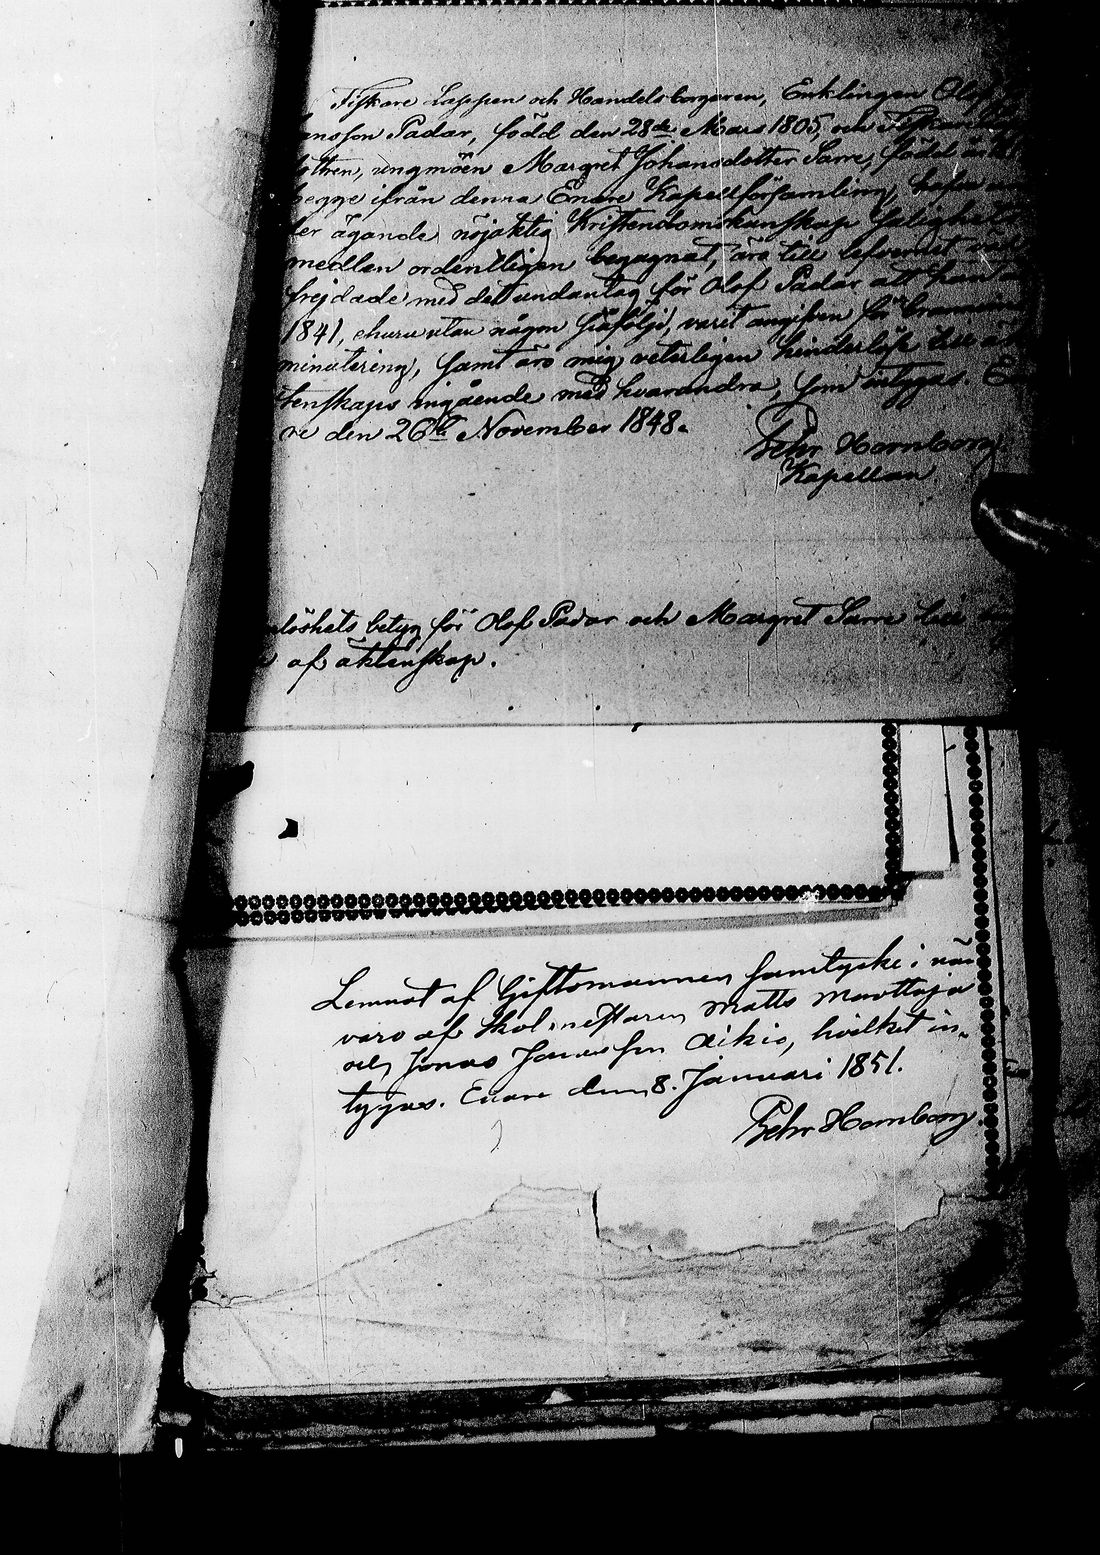 Fiskare Lappen och Handelsborgaren, Enklingen Olof
ansson Padar, född den 28de Mars 1805, och Fiskare
dottren, ungmöen Margret Johansdotter Sarre, född
begge ifrån denna Enare Kapellförsamling, hafva
der ägande nöjaktig Kristendomskunskap
medlen ordentligen begagnat, äro till lefvernet
frejdade med det undantag för Olof Padar att han
1841, ehuru utan någon påföljd, varit angifven för bränvins
minutering, samt äro mig veterligen hinderlöse till
tenskaps ingående med hvarandra, som intygas. En
re den 26te November 1848.
Pehr Hornborg.
Kapellan
löshets betyg för Olof Padar och Margret Sarre till
af äktenskap.
Lemnat af Giftomannen samtycke i när
varo af Skolmestaren Matts Marttaja
och Jonas Jonasson Aikio, hvilket in-
tygas. Enare den 8. Januari 1851.
Pehr Hornborg.